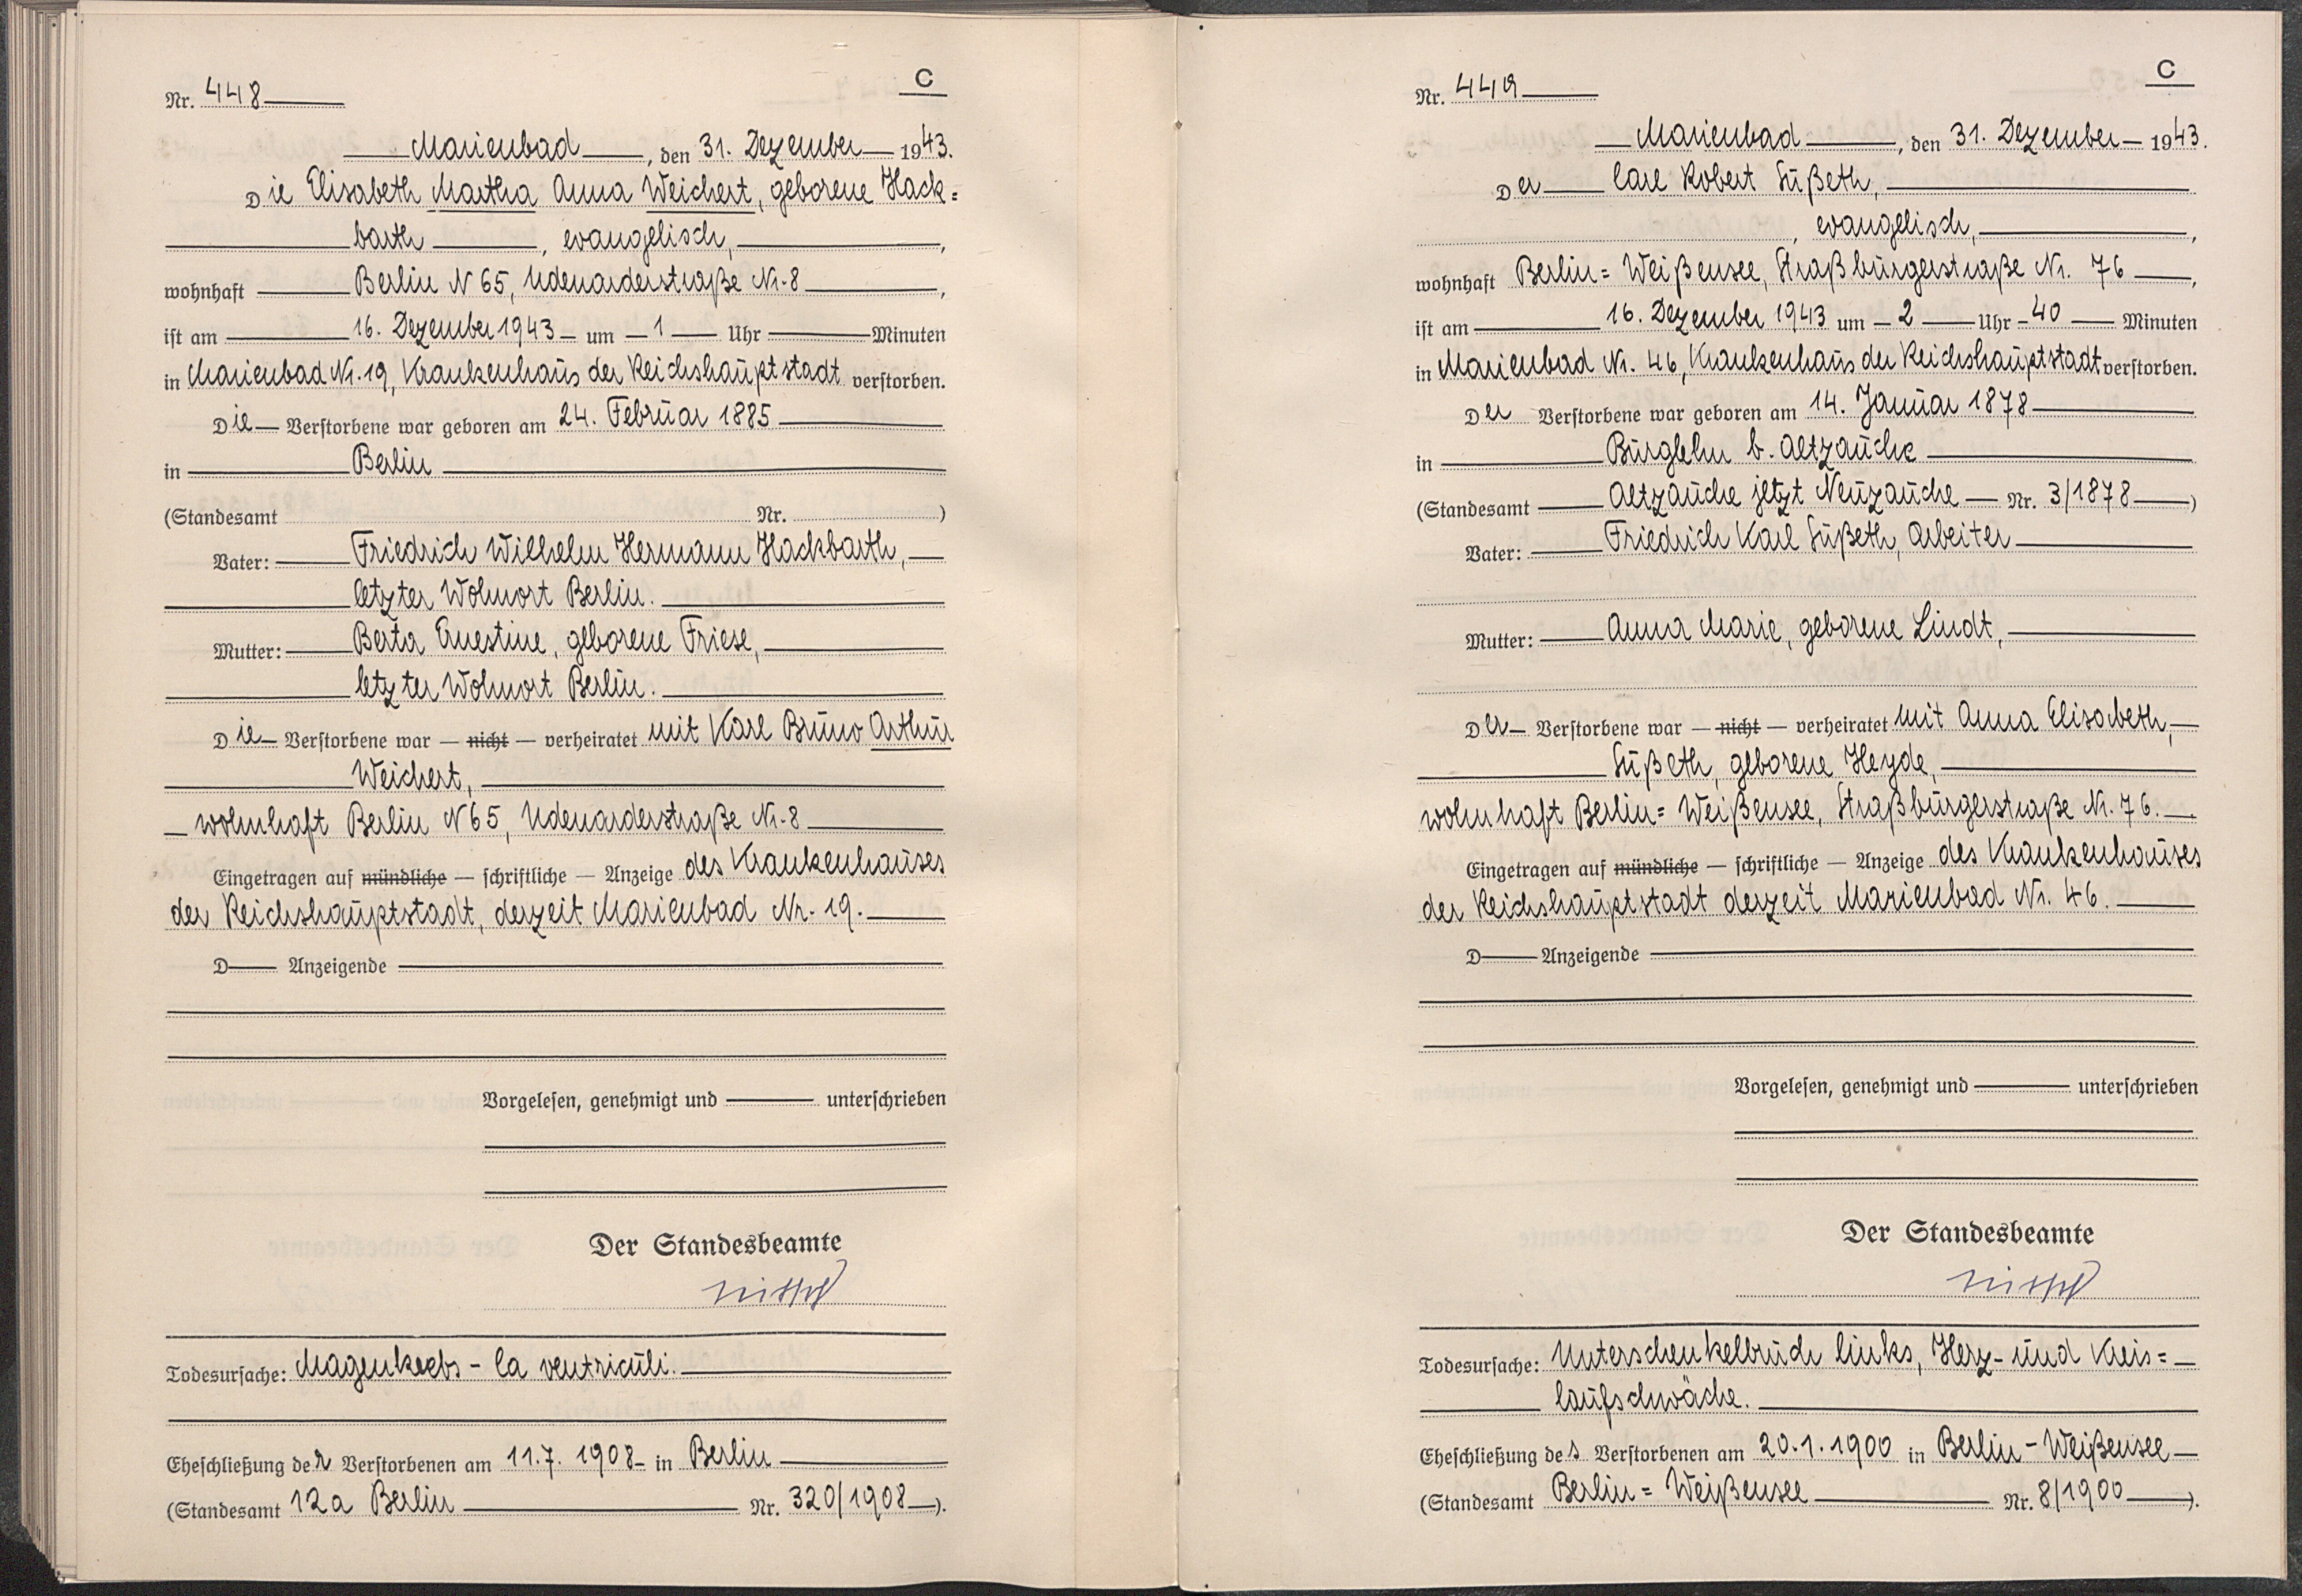 C
Nr. 448
Marienbad, den 31. Dezember 1943.
Die Elisabeth Martha Anna Weichert, geborene Hack=
barth, evangelisch,
wohnhaft Berlin N 65, Udenarderstraße Nr. 8,
ist am 16. Dezember 1943 um 1 Uhr Minuten
in Marienbad Nr. 19, Krankenhaus der Reichshauptstadt verstorben.
Die Verstorbene war geboren am 24. Februar 1885
in Berlin
(Standesamt Nr. )
Vater: Friedrich Wilhelm Hermann Hackbarth,
letzter Wohnort Berlin.
Mutter: Berta Ernestine, geborene Friese,
letzter Wohnort Berlin.
Die Verstorbene war — nicht — verheiratet mit Karl Bruno Arthur
Weichert,
wohnhaft Berlin N 65, Udenarderstraße Nr. 8
Eingetragen auf mündliche — schriftliche — Anzeige des Krankenhauses
der Reichshauptstadt, derzeit Marienbad Nr. 19.
D Anzeigende
Vorgelesen, genehmigt und unterschrieben
Der Standesbeamte
Todesursache: Magenkrebs - Ca ventriculi.
Eheschließung der Verstorbenen am 11.7. 1908 in Berlin
(Standesamt 12a Berlin Nr. 320/1908).
C
Nr. 449
Marienbad, den 31. Dezember 1943.
Der Carl Robert Süßeth,
, evangelisch,
wohnhaft Berlin=Weißensee, Straßburgerstraße Nr. 76,
ist am 16. Dezember 1943 um 2 Uhr 40 Minuten
in Marienbad Nr. 46, Krankenhaus der Reichshauptstadt verstorben.
Der Verstorbene war geboren am 14. Januar 1878
in Burglehn b. Altzauche
(Standesamt Altzauche jetzt Neuzauche Nr. 3/1878)
Vater: Friedrich Karl Süßeth, Arbeiter
Mutter: Anna Marie, geborene Lindt,
Der Verstorbene war — nicht — verheiratet mit Anna Elisabeth,
Süßeth, geborene Heyde,
wohnhaft Berlin=Weißensee, Straßburgerstraße Nr. 76.
Eingetragen auf mündliche — schriftliche — Anzeige des Krankenhauses
der Reichshauptstadt derzeit Marienbad Nr. 46.
D Anzeigende
Vorgelesen, genehmigt und unterschrieben
Der Standesbeamte
Todesursache: Unterschenkelbruch links, Herz- und Kreis=
laufschwäche.
Eheschließung des Verstorbenen am 20.1.1900 in Berlin-Weißensee
(Standesamt Berlin=Weißensee Nr. 8/1900).